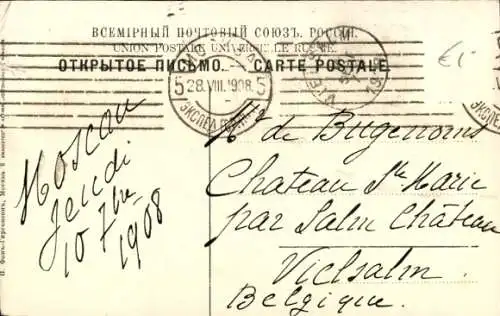 ВСЕМІРНЫЙ ПОЧТОВЫЙ СОЮЗЪ. РОССІЯ.
UNION POSTALE UNIVERSELLE RUSSIE.
ОТКРЫТОЕ ПИСЬМО. — CARTE POSTALE.
€1
5 28.VIII.1908. 5
Moscau
Jeudi
10 7bre
1908
de Bugenoms
Chateau Ste Marie
par Salm Château
Vielsalm
Belgique.